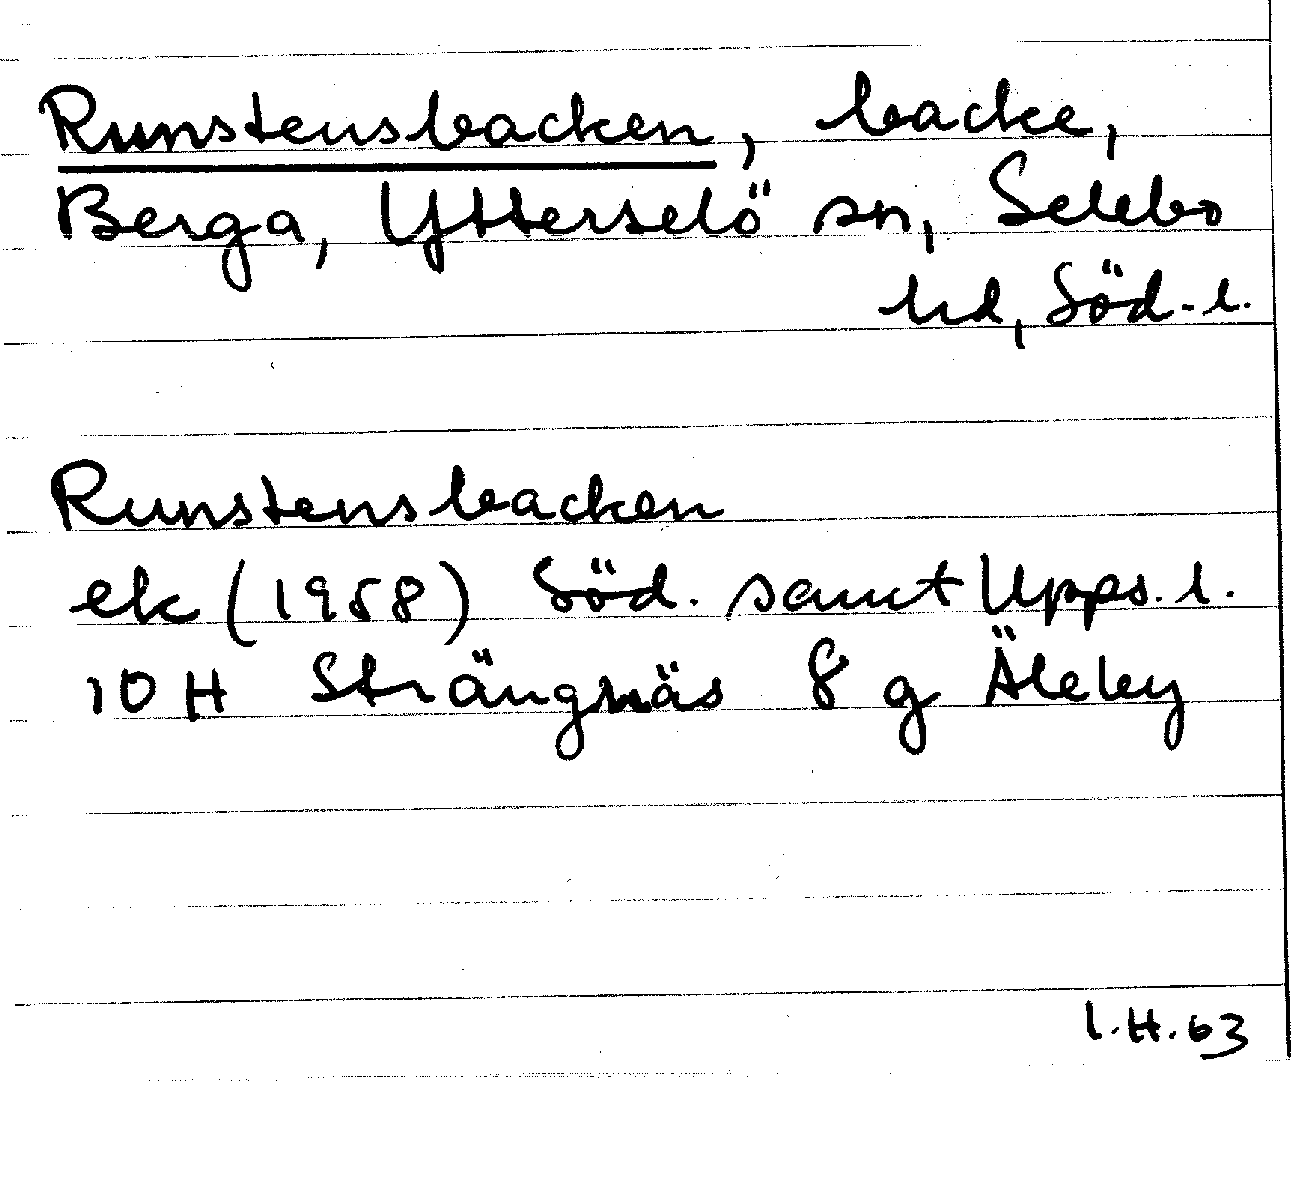 Runstensbacken, backe,
Berga, Ytterselö sn, Selebo
hd, Söd. l.
Runstensbacken
ek (1958) Söd. samt Upps. l.
10 H Strängnäs 8 g Äleby
I.H.63